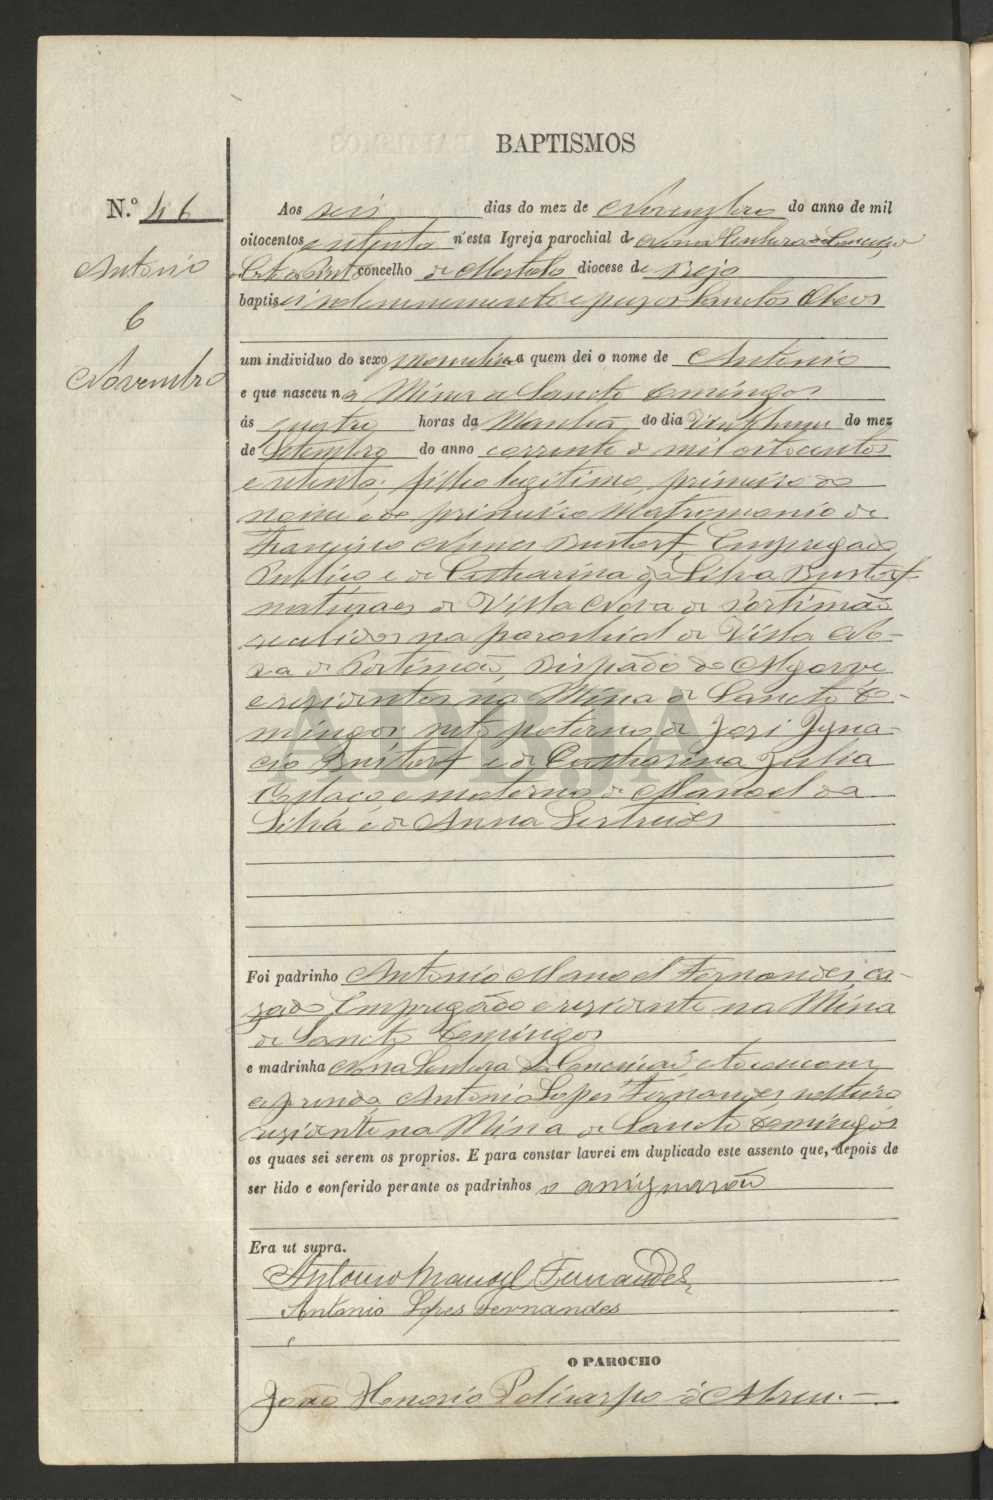 BAPTISMOS
N.º 46
Antonio
6
Novembro
Aos seis dias do mez de Novembro do anno de mil
oitocentos e setenta n'esta Igreja parochial de Nossa Senhora da Conceição
concelho de Mertola diocese de Beja
baptisei solemnemente e puz os Sanctos Oleos
um individuo do sexo masculino a quem dei o nome de Antonio
e que nasceu na Mina de Sancto Domingos
ás quatro horas da Manhã do dia do mez
de Setembro do anno corrente de mil oitocentos
e setenta; filho legitimo primeiro do
nome e do primeiro Matrimonio de
Francisco Nunes Bustorf, Empregado
Publico e de Catharina da Silva Bustorf
naturaes de Villa Nova de Portimão
recebidos na parochial de Villa No-
va de Portimão, Bispado do Algarve
e residentes na Mina de Sancto Do-
mingos; neto paterno de José Igna-
cio Bustorf e de Catharina Julia
e materno de Manoel da
Silva e de Anna Gertrudes
Foi padrinho Antonio Manoel Fernandes, ca-
zado, Empregado e residente na Mina
de Sancto Domingos
e madrinha Nossa Senhora da Conceição e tocou com
a prenda Antonio Lopes Fernandes solteiro
residente na Mina de Sancto Domingos
os quaes sei serem os proprios. E para constar lavrei em duplicado este assento que, depois de
ser lido e conferido perante os padrinhos o assignarão
Era ut supra.
Antonio Manoel Fernandes
Antonio Lopes Fernandes
O PAROCHO
João Honorio Policarpo d'Abreu.
ADBJA